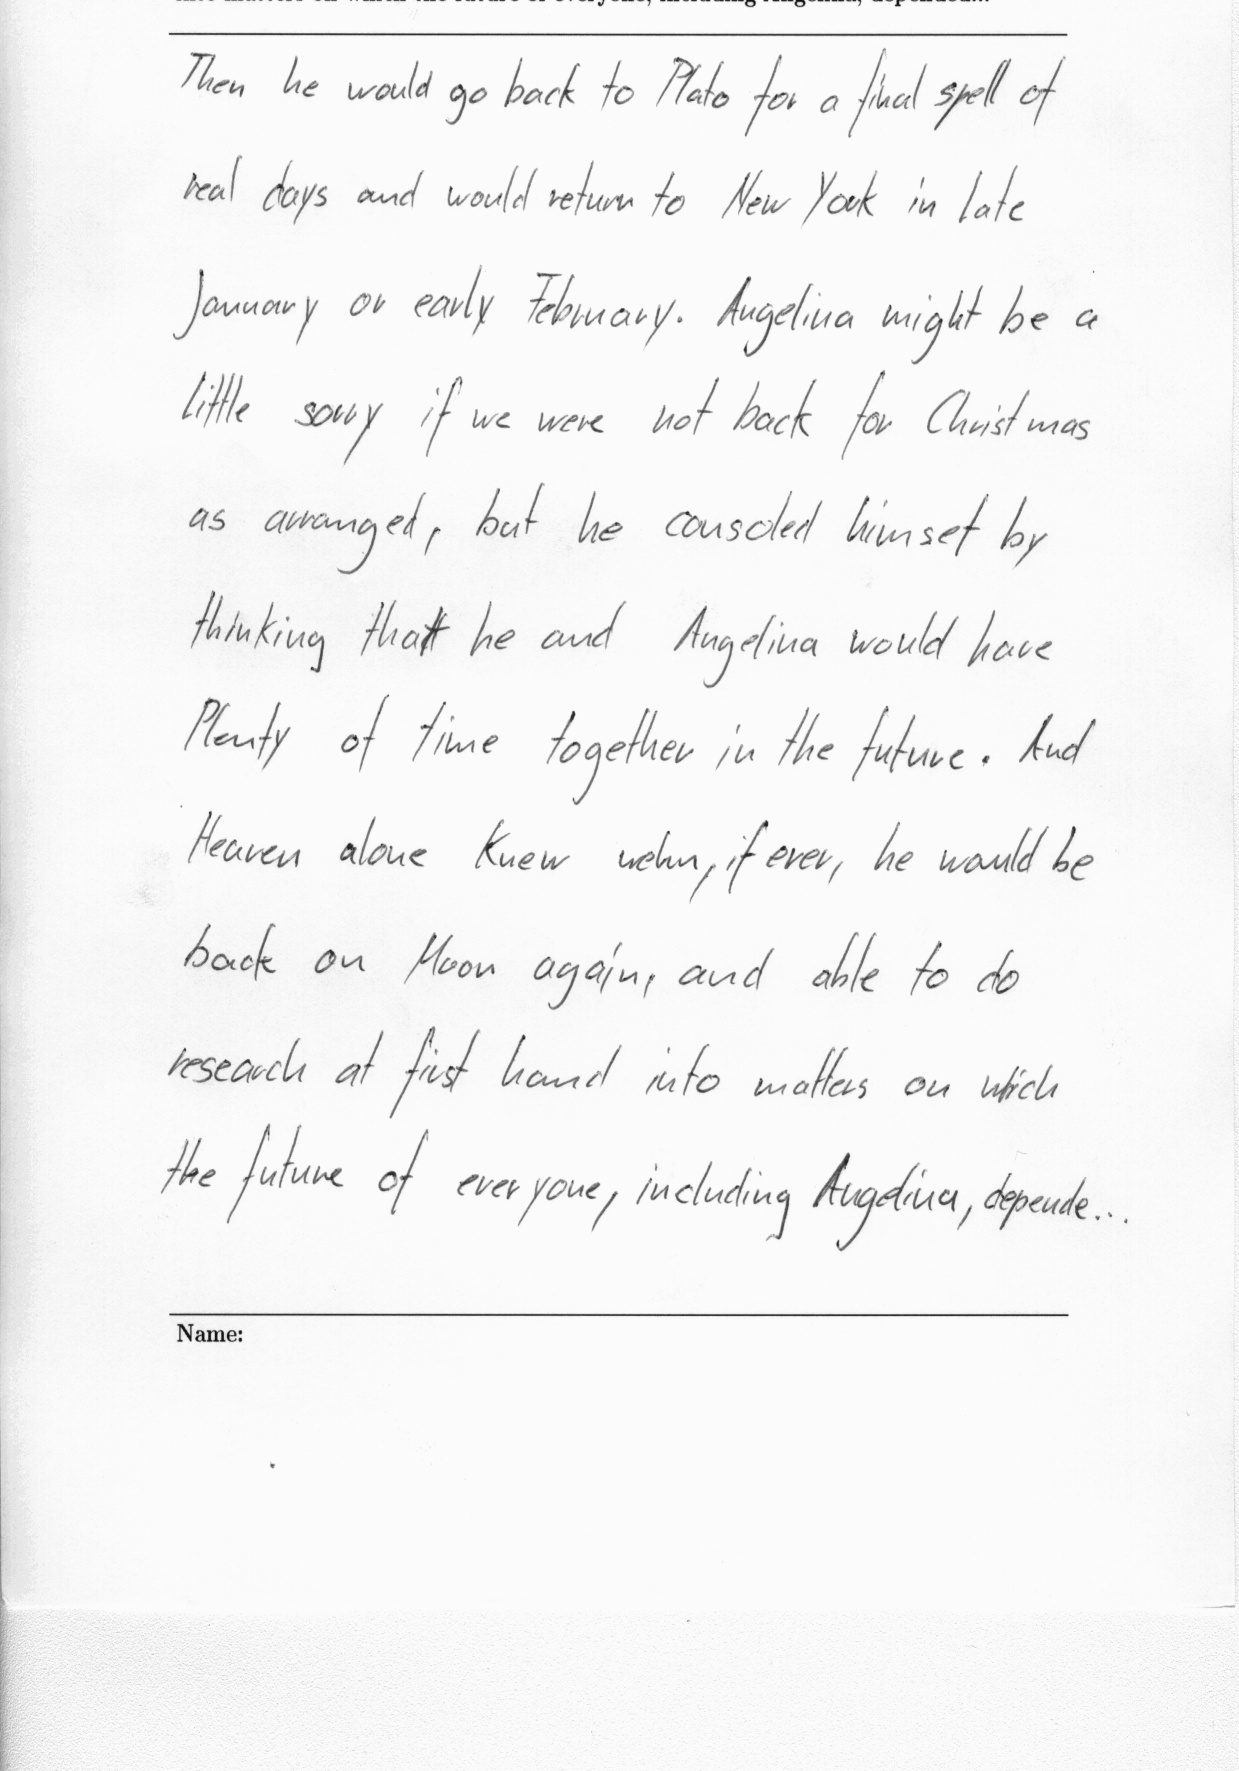 into matters on which the future of everyone, including Angelina, depended...
Then he would go back to Plato for a final spell of
real days and would return to New York in late
January or early February. Angelina might be a
little sorry if we were not back for Christmas
as arranged, but he consoled himset by
thinking that he and Angelina would have
Plenty of time together in the future. And
Heaven alone Knew wehn, if ever, he would be
back on Moon again, and able to do
research at first hand into matters on which
the future of everyone, including Angelina, depende...
Name: